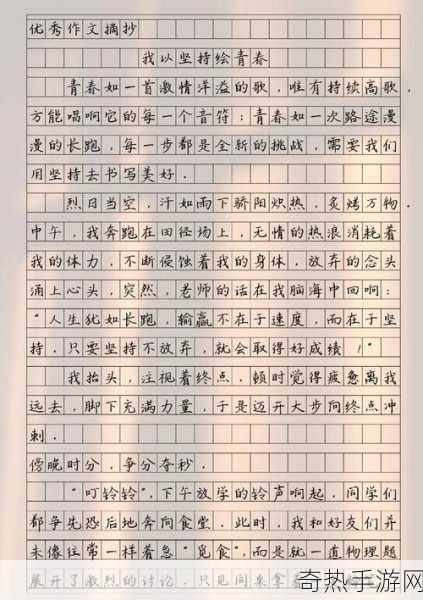 优秀作文摘抄
我以坚持绘青春
青春如一首激情洋溢的歌，唯有持续高歌，
方能唱响它的每一个音符；青春如一次路途漫
漫的长跑，每一步都是全新的挑战，需要我们
用坚持去书写美好．
烈日当空，汗如雨下骄阳炽热，炙烤万物．
中午，我奔跑在田径场上，无情的热浪消耗着
我的体力，不断侵蚀着我的身体，放弃的念头
涌上心头，突然，老师的话在我脑海中回响：
“人生犹如长跑，输赢不在于速度，而在于坚
持．只要坚持不放弃，就会取得好成绩！”
我抬头，注视着终点，顿时觉得疲惫离我
远去，脚下充满力量，于是迈开大步向终点冲
刺．
傍晚时分，争分夺秒．
“叮铃铃”，下午放学的铃声响起，同学们
都争先恐后地奔向食堂．此时，我和好友们并
未像往常一样着急“觅食”，而是就一道物理题
展开了激烈的讨论，只见同桌拿
奇热手游网